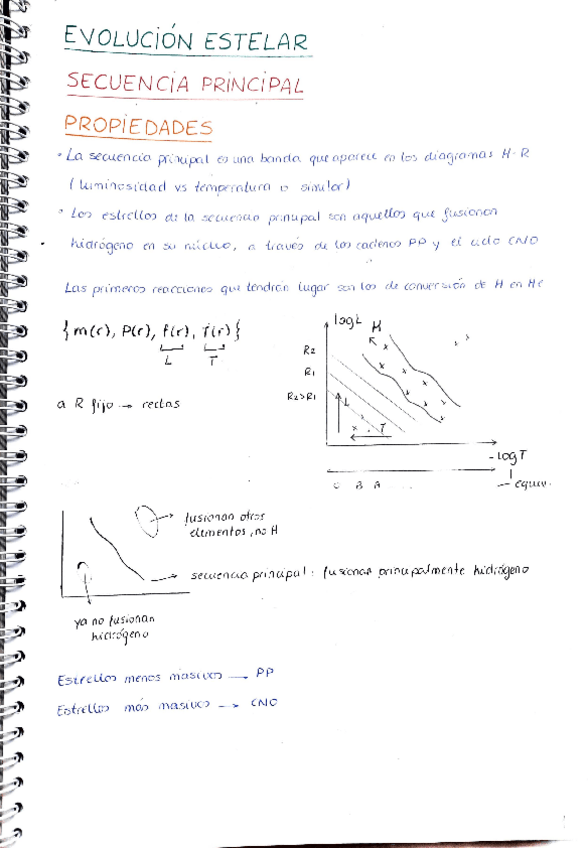 EVOLUCIÓN ESTELAR
SECUENCIA PRINCIPAL
PROPIEDADES
· La secuencia principal es una banda que aparece en los diagramas H-R
(luminosidad vs temperatura o similar)
· Las estrellas de la secuencia principal son aquellas que fusionan
hidrógeno en su núcleo, a través de las cadenas PP y el ciclo CNO
Las primeras reacciones que tendrán lugar son las de conversión de H en He
{m(r), P(r), f(r), T(r)}
L T
a R fijo → rectas
log L
M
R2
R1
R2>R1
L
T
- log T
O B A ....
equiv.
fusionan otros
elementos, no H
secuencia principal: fusionan principalmente hidrógeno
ya no fusionan
hidrógeno
Estrellas menos masivas → PP
Estrellas más masivas → CNO